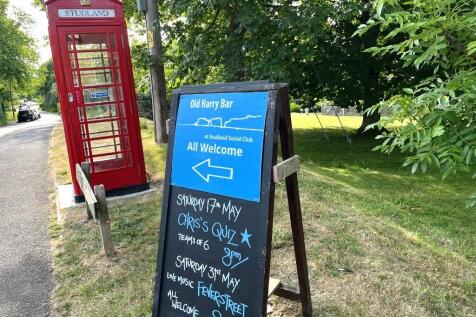 STUDLAND
Old Harry Bar
at Studland Social Club
All Welcome
SATURDAY 17th MAY
CHRIS'S QUIZ
TEAMS OF 6
8pm
SATURDAY 31st MAY
LIVE MUSIC FEVERSTREET
ALL WELCOME